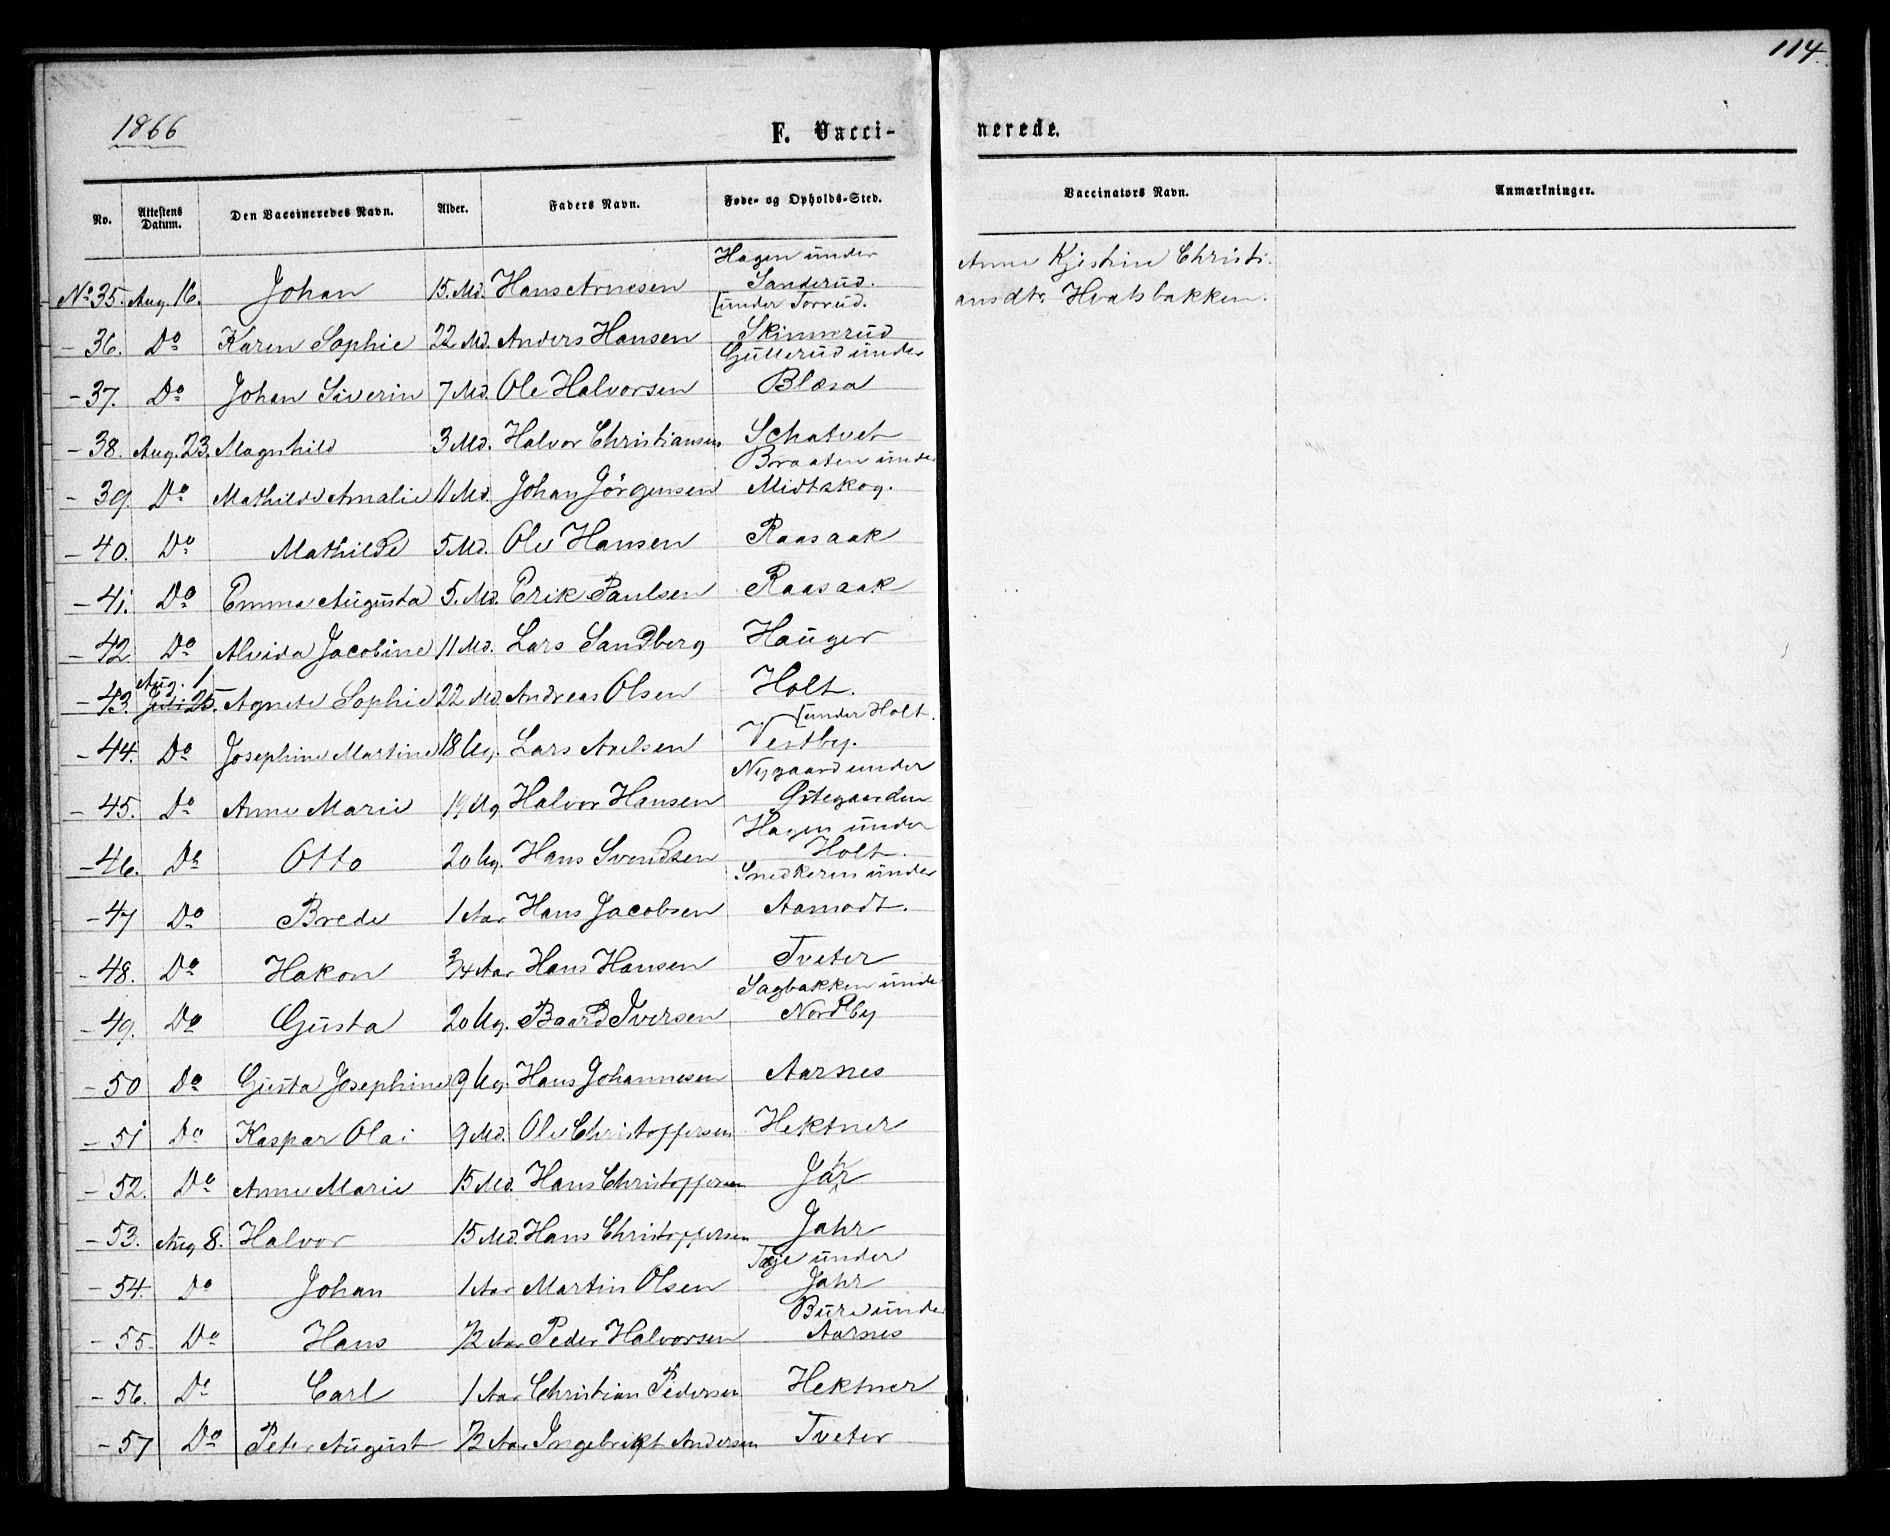 114.
1866
F. Vacci-
nerede.
No. Attestens Datum. Den Vaccineredes Navn. Alder. Faders Navn. Føde- og Opholds-Sted. Vaccinators Navn. Anmærkninger.
Hagen under
No 35. Aug. 16. Johan 15. Md. Hans Arnesen Sanderud. Anne Kjistine Christi-
ansdtr Hvalsbakken.
[under Torrud.
- 36. Do Karen Sophie 22 Md. Anders Hansen Skinnerud
Gullerud under
- 37. Do Johan Siverin 7 Md. Ole Halvorsen Blæsa
- 38. Aug. 23. Magnhild 3 Md. Halvor Christiansen Schatvet
Braaten under
- 39. Do Mathilde Amalie 11 Md. Johan Jörgensen Midtskog.
- 40. Do Mathilde 5 Md. Ole Hansen Raasaak
- 41. Do Emma Augusta 5. Md. Erik Paulsen Raasaak
- 42 Do Alvida Jacobine 11 Md. Lars Sandberg Hauger
Aug. 1
- 43. Juli 25. Agnete Sophie 22 Md. Andreas Olsen Holt.
[under Holt.
- 44. Do Josephine Martine 18 Ug. Lars Axelsen Vestby.
Nygaard under
- 45. Do Anne Marie 19 Ug Halvor Hansen Østegaarden
Hagen under
- 46. Do Otto 20 Ug. Hans Svendsen Holt.
Snedkeren under
- 47 Do Brede 1 Aar Hans Jacobsen Aamodt.
- 48. Do Hakon 3/4 Aar Hans Hansen Tveter
Sagbakken under
- 49. Do Gusta 20 Ug. Baard Iversen Nordby
- 50 Do Gusta Josephine 9 Ug. Hans Johannesen Aarnes
- 51 Do Kaspar Olai 9 Md. Ole Christoffersen Hektner
- 52. Do Anne Marie 15 Md. Hans Christoffersen Jahr
- 53. Aug 8. Halvor 15 Md. Hans Christoffersen Jahr
Tæje under
- 54. Do Johan 1 Aar Martin Olsen Jahr
Bure under
- 55. Do Hans 1/2 Aar Peder Halvorsen Aarnes
- 56. Do Carl 1 Aar Christian Pedersen Hektner
- 57 Do Peter August 1/2 Aar Ingebrigt Andersen Tveter